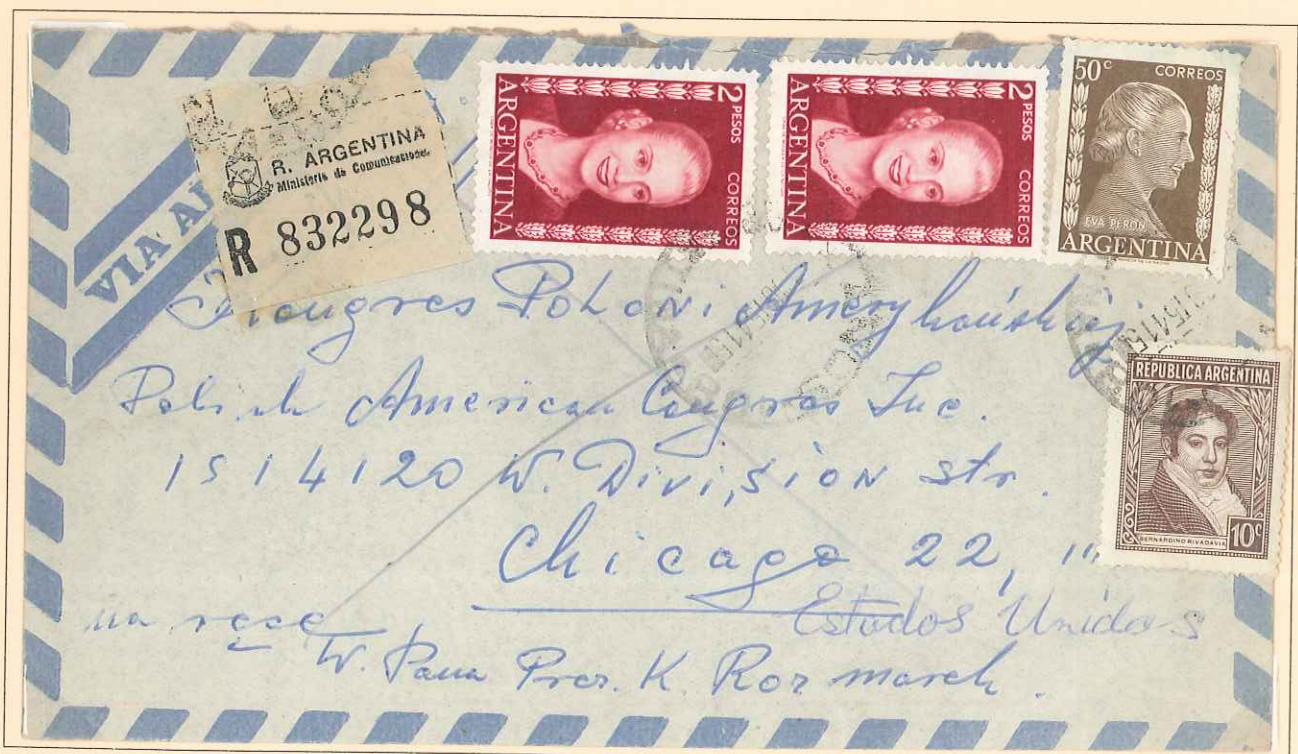 R. ARGENTINA
Ministerio de Comunicaciones
R 832298
VIA
2 PESOS CORREOS
ARGENTINA
2 PESOS CORREOS
ARGENTINA
50c CORREOS
EVA PERÓN
ARGENTINA
REPÚBLICA ARGENTINA
BERNARDINO RIVADAVIA
10c
Kongres Poloni Amerykańskiej
Polish American Congres Inc.
1514120 W. Division str.
Chicago 22, Ill
Estados Unidos
na ręce
W. Pana Prez. K. Rozmarek.